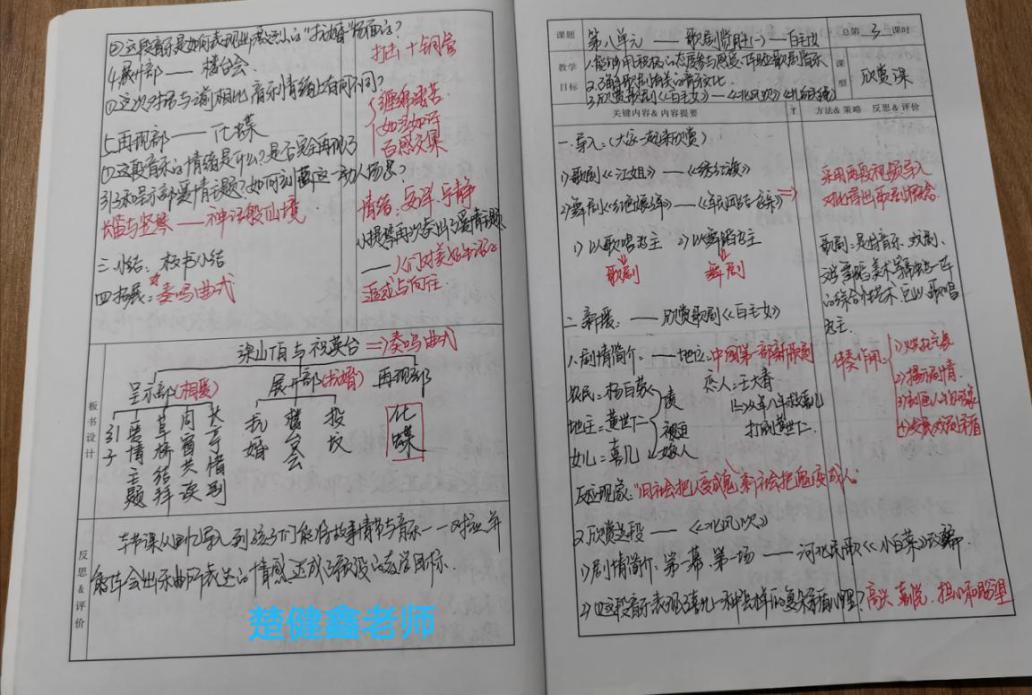 ②这段音乐是如何表现出激烈的"抗婚"场面?
打击+铜管
4.展开部——楼台会
①这次对话与之前相比,音乐情绪上有何不同?
缠绵悲苦
如泣如诉
百感交集
5.再现部——化蝶
①这段音乐的情绪是什么?是否完全再现了
引子和呈示部爱情主题?如何刻画这一动人场景?
长笛与竖琴——神话般仙境
情绪:安详、宁静
小提琴再次奏出了爱情主题
——人们对美好生活的
追求与向往
三.小结:板书小结
四.拓展:奏鸣曲式
板书设计
梁山伯与祝英台⇒奏鸣曲式
呈示部(相爱) 展开部(抗婚) 再现部
引子
爱情主题
草桥结拜
同窗共读
长亭惜别
抗婚
楼台会
投坟
化蝶
反思&评价
本节课从回忆导入到孩子们能将故事情节与音乐一一对应,并
能体会出乐曲所表达的情感,达成了预设的教学目标.
楚健鑫老师
课题
第八单元——歌剧览胜(一)——白毛女
总第 3 课时
教学目标
课型
欣赏课
3.欣赏歌剧《白毛女》——《北风吹》
关键内容&内容提要
T
方法&策略 反思&评价
一.导入:(大家一起来欣赏)
1)歌剧《江姐》——《绣红旗》
2)舞剧《红色娘子军》——
1)以歌唱为主 2)以舞蹈为主
歌剧 舞剧
采用两段视频导入
对比得出歌剧的概念.
歌剧:是将音乐、戏剧、
文学、舞蹈、美术等融为一体
的综合性艺术,它以歌唱
为主.
二.新授:——欣赏歌剧《白毛女》
1.剧情简介:——地位:中国第一部新歌剧
农民=杨白劳
地主=黄世仁
女儿=喜儿
恋人=王大春
打倒黄世仁.
伴奏作用:
2)揭示剧情
3)刻画人物形象
4)发展戏剧矛盾
反应现象:"旧社会把人变成鬼,新社会把鬼变成人"
2.欣赏选段——《北风吹》
1)剧情简介:第一幕、第一场——河北民歌《小白菜》改编
2)四段音乐表现了喜儿一种怎样的复杂矛盾心理?高兴、喜悦、担心和盼望